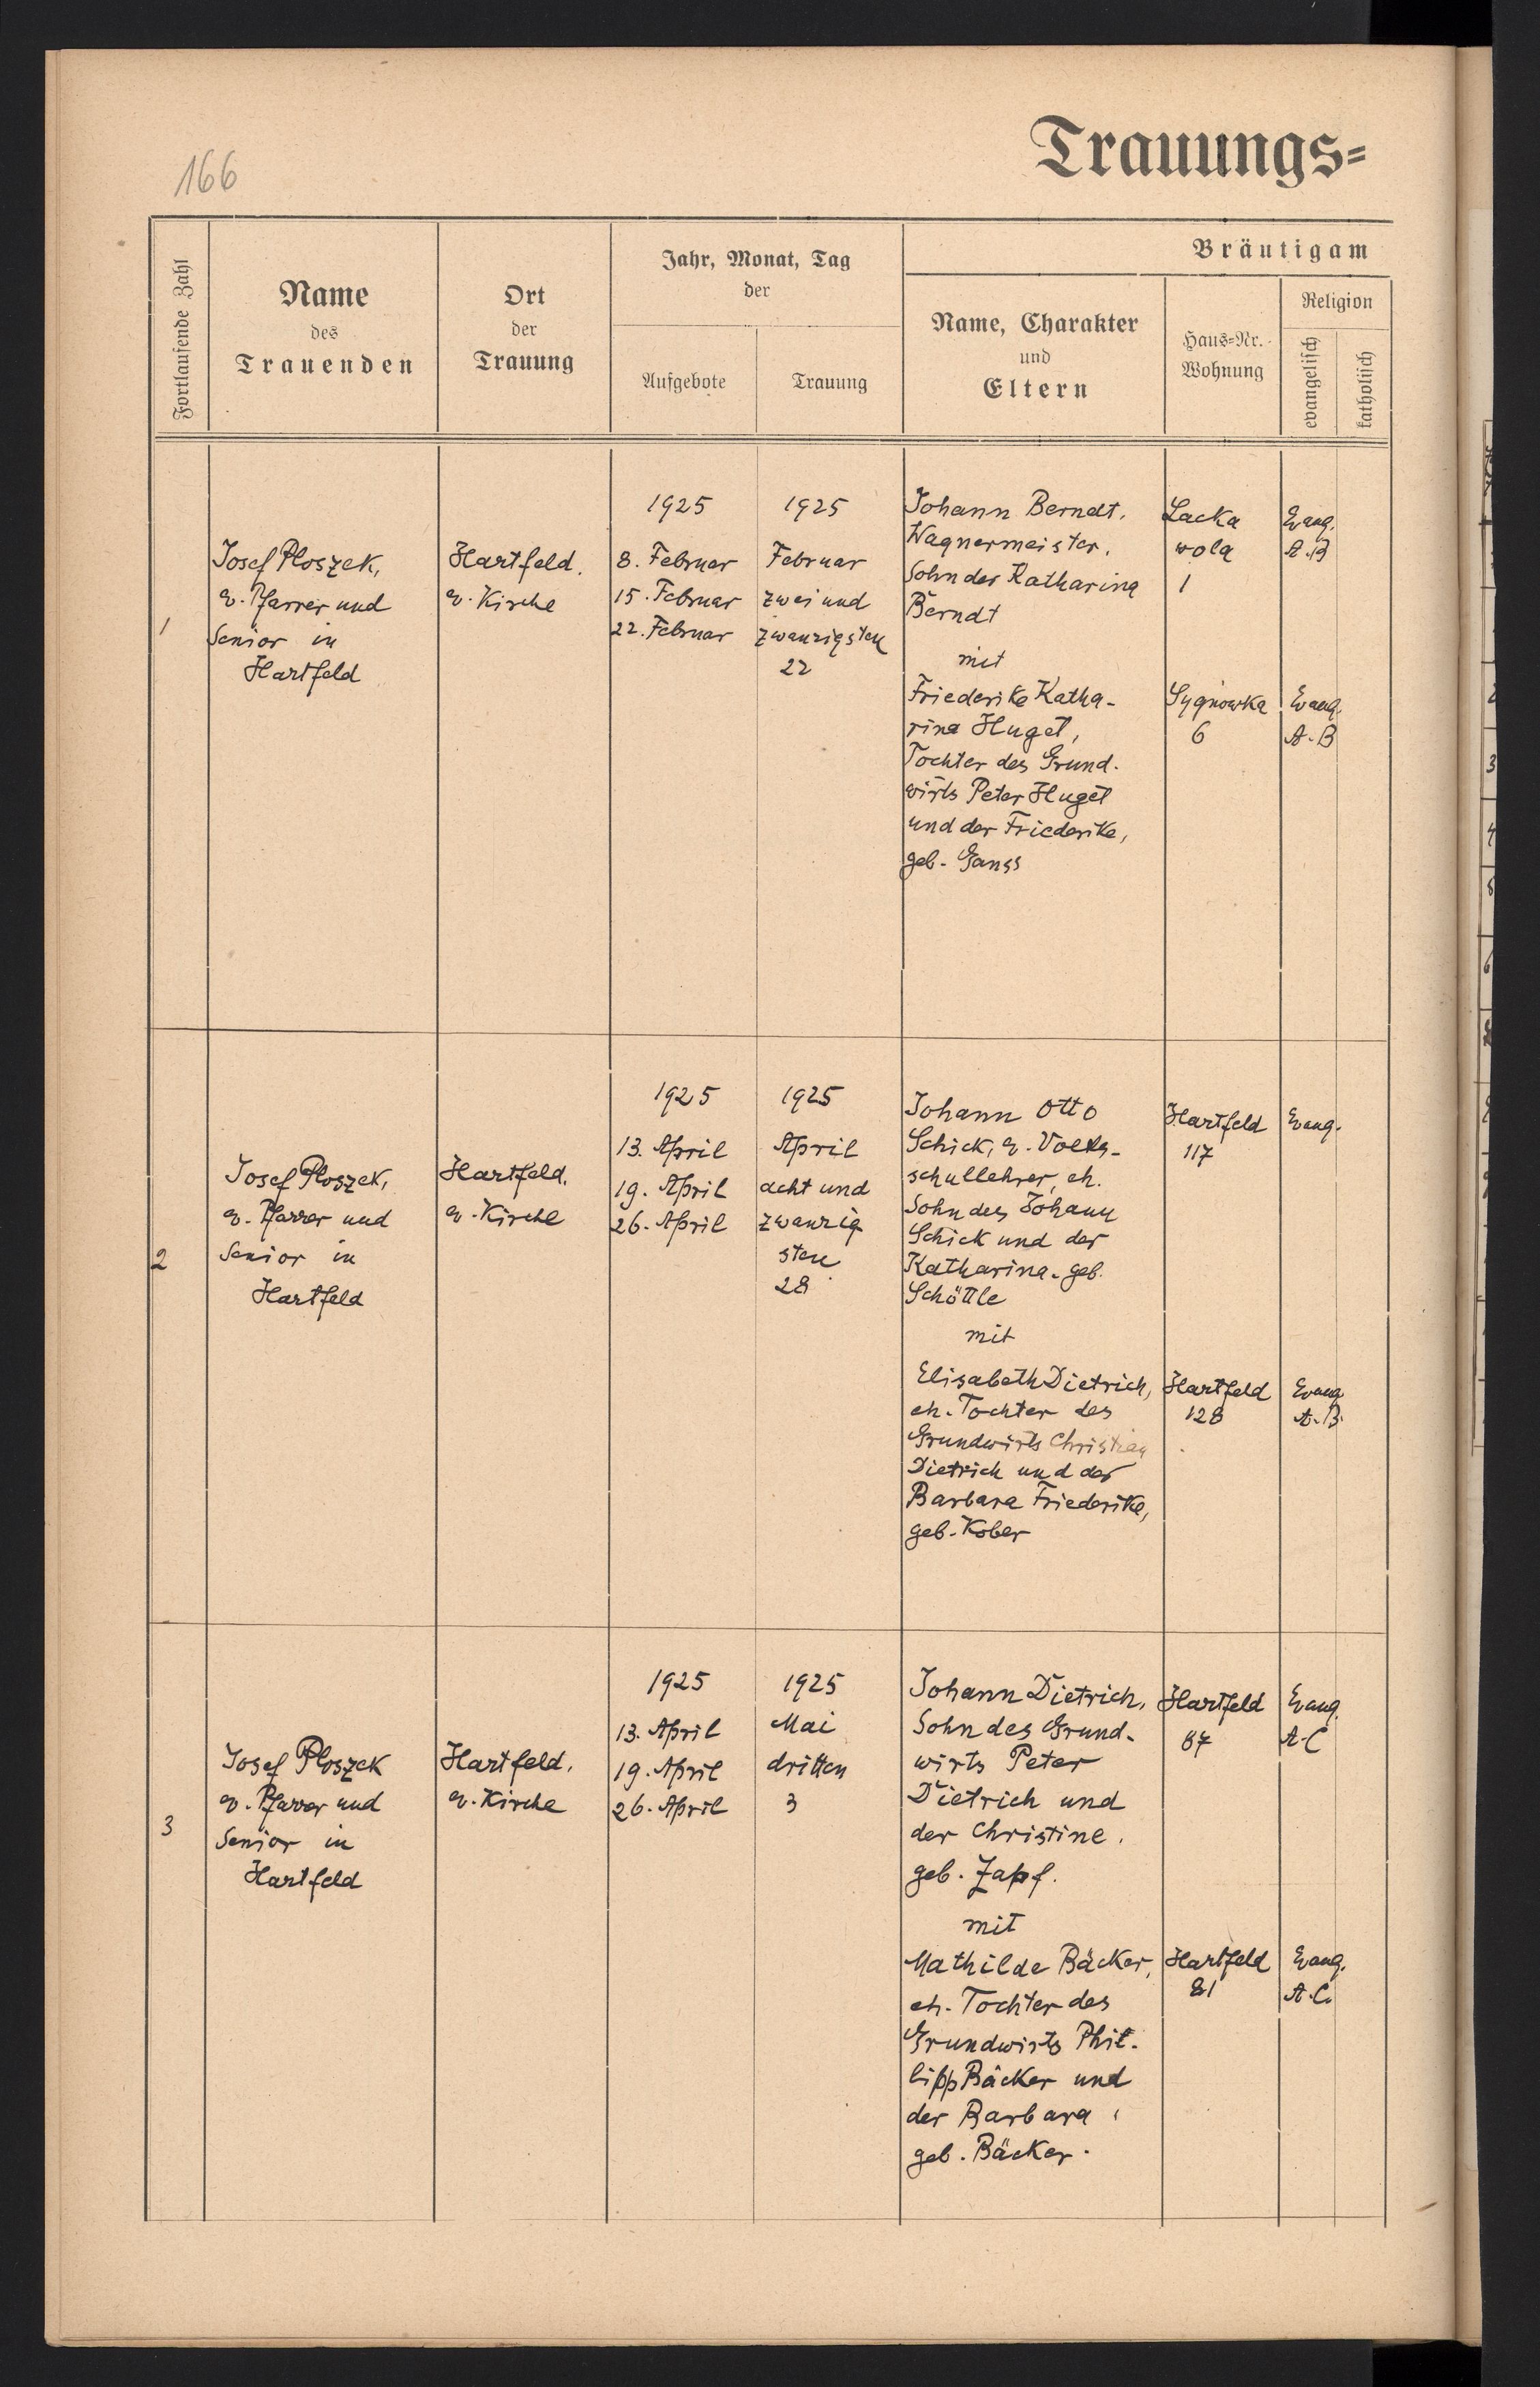 166
Trauungs=
Fortlaufende Zahl
Name
des
Trauenden
Ort
der
Trauung
Jahr, Monat, Tag
der
Aufgebote
Trauung
Bräutigam
Name, Charakter
und
Eltern
Haus=Nr.
Wohnung
Religion
evangelisch
katholisch
1
Josef Ploszek,
ev. Pfarrer und
Senior in
Hartfeld
Hartfeld.
ev. Kirche
1925
8. Februar
15. Februar
22. Februar
1925
Februar
zwei und
zwanzigsten
22
Johann Berndt,
Wagnermeister,
Sohn der Katharina
Berndt
mit
Friederike Katha-
rina Hugel,
Tochter des Grund-
wirts Peter Hugel
und der Friederike,
geb. Ganss
Lacka
wola
1
Sygnówka
6
Evang.
A.B
Evang.
A.B
2
Josef Ploszek,
ev. Pfarrer und
Senior in
Hartfeld
Hartfeld.
ev. Kirche
1925
13. April
19. April
26. April
1925
April
acht und
zwanzig
sten
28
Johann Otto
Schick, ev. Volks-
schullehrer, eh.
Sohn des Johann
Schick und der
Katharina. geb.
Schöttle
mit
Elisabeth Dietrich,
eh. Tochter des
Grundwirts Christian
Dietrich und der
Barbara Friederike,
geb. Kober
Hartfeld
117
Hartfeld
128
Evang.
Evang
A.B.
3
Josef Ploszek
ev. Pfarrer und
Senior in
Hartfeld
Hartfeld.
ev. Kirche
1925
13. April
19. April
26. April
1925
Mai
dritten
3
Johann Dietrich,
Sohn des Grund-
wirts Peter
Dietrich und
der Christine.
geb. Zapf.
mit
Mathilde Bäcker,
eh. Tochter des
Grundwirts Phil-
lipp Bäcker und
der Barbara,
geb. Bäcker.
Hartfeld
87
Hartfeld
81
Evang.
A.C
Evang.
A.C.